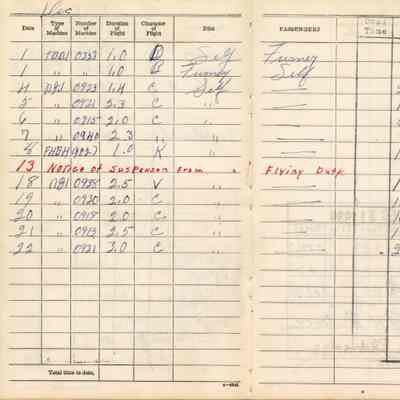 Dec
Date Type of Machine Number of Machine Duration of Flight Character of Flight Pilot PASSENGERS Dead Time
1 0353 1.0 Self Furney
1 " " 1.0 Furney Self
4 0923 1.4 C Self
5 " 0921 2.3 C "
6 " 0915 2.0 C "
7 " 0940 2.3 " "
8 1.0 K "
13 Notice of Suspension from Flying Duty
18 0928 2.5 V "
19 " 0920 2.0 C "
20 " 0918 2.0 C "
21 " 0913 2.5 C "
22 " 0921 3.0 C "
Total time to date,